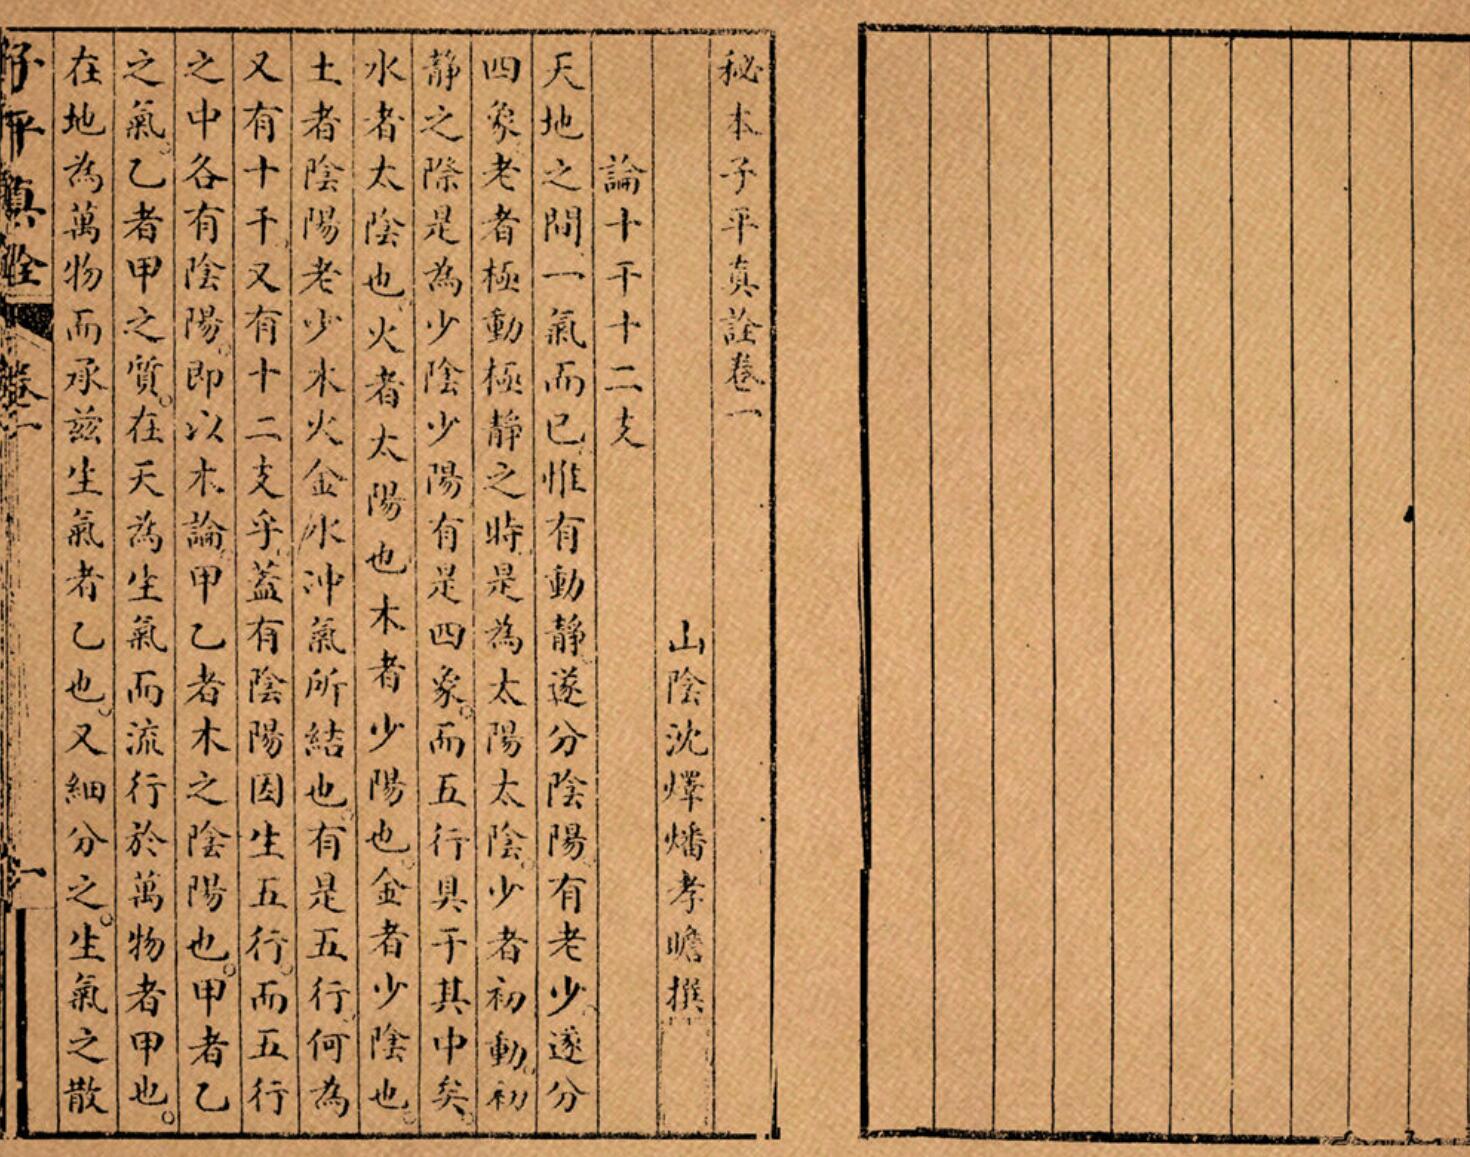 秘本子平真詮卷一
山陰沈燡燔孝瞻撰
論十干十二支
天地之間一氣而已惟有動靜遂分陰陽有老少遂分
四象老者極動極靜之時是為太陽太陰少者初動初
靜之際是為少陰少陽有是四象而五行具于其中矣
水者太陰也火者太陽也木者少陽也金者少陰也
土者陰陽老少木火金水冲氣所結也有是五行何為
又有十干又有十二支乎蓋有陰陽因生五行而五行
之中各有陰陽即以木論甲乙者木之陰陽也甲者乙
之氣乙者甲之質在天為生氣而流行於萬物者甲也
在地為萬物而承茲生氣者乙也又細分之生氣之散
子平真詮 卷一 一